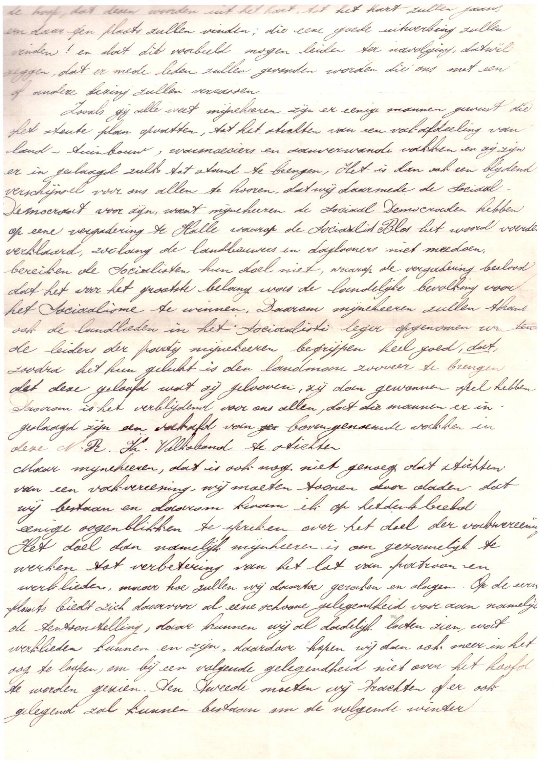 de hoop, dat deze woorden uit het hart, tot het hart zullen gaan,
en daar een plaats zullen vinden; die eene goede uitwerking zullen
vinden! en dat dit voorbeeld mogen leiden ter navolging, dat wil
zeggen, dat er mede leden zullen gevonden worden die ons met een
of andere lezing zullen verrassen.
Zooals gij alle weet mijneheeren zijn er eenige mannen geweest die
het stoute plan opvatten, tot het stichten van een vakafdeeling van
land-tuinbouw, warmoeziers en aanverwande vakken en zij zijn
er in geslaagd zulks tot stand te brengen, Het is dan ook een blijdend
verschijnsel voor ons allen te hooren, dat wij daarmede de Sociaal-
Democraat voor zijn, want mijneheeren de Sociaal Democraaden hebben
op eene vergadering te Halle waarop de Socialist Blos het woord voerde
verklaard, zoolang de landbouwers en dagloners niet meedoen,
bereiken de Socialisten hun doel niet, waarop de vergadering besloot
dat het voor het grootste belang was de landelijke bevolking voor
het Socialisme te winnen. Daarom mijneheeren zullen thans
ook de landlieden in het Socialisti leger opgenomen
de leiders der partij mijneheeren begrijpen heel goed, dat,
zoodra het hun gelukt is den landman zoover te brengen
dat deze gelooft wat zij gelooven, zij dan gewonnen spel hebben
Daarom is het verblijdend voor ons allen, dat die mannen er in
geslaagd zijn een vakafd van bovengenoemde vakken in
deze N. R. K. Volksbond te stichten
Maar mijneheeren, dat is ook nog niet genoeg dat stichten
van een vakvereening, wij moeten toonen door daden dat
wij bestaan en daarom kwam ik op het denkbeeld
eenige oogenblikken te spreken over het doel der vakvereening
Het doel dan namelijk mijnheeren is om gezamelijk te
werken tot verbetering van het lot van patroon en
werklieden, maar hoe zullen wij daartoe geraken en slagen. Op de eerste
plaats biedt zich daarvoor al eene schoone gelegentheid voor aan namelijk
de tentoonstelling, daar kunnen wij al dadelijk laten zien, wat
werklieden kunnen en zijn, daardoor hopen wij dan ook meer in het
oog te loopen, om bij een volgende gelegendheid niet over het hoofd
te worden gezien. Ten Tweede moeten wij trachten of er ook
gelegend zal kunnen bestaan om de volgende winter